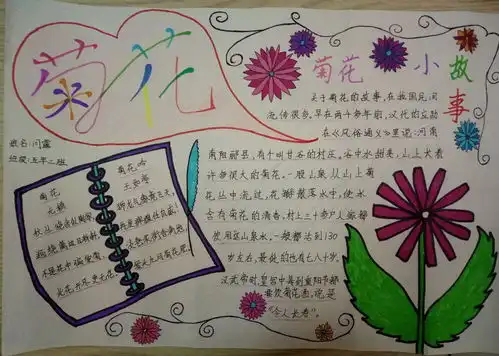 菊花
姓名:闫露
班级:五年二班
菊花
元稹
秋丛绕舍似陶家,
遍绕篱边日渐斜。
不是花中偏爱菊,
此花开尽更无花。
菊花吟
菊花 小故事
关于菊花的故事,在我国民间
流传很多,早在两千多年前,汉代的应劭
在《风俗通义》里记:河南
南阳郦县,有个叫甘谷的村庄。谷中水甜美,山上长着
许多很大的菊花。一股山泉从山上菊
花丛中流过,花瓣散落水中,使水
含有菊花的清香,村上三十多户人家都
使用这山泉水,一般都活到130
岁左右,最低的也有七八十岁,
汉武帝时,皇宫中每到重阳节都
要饮菊花酒,说是
“令人长寿”。